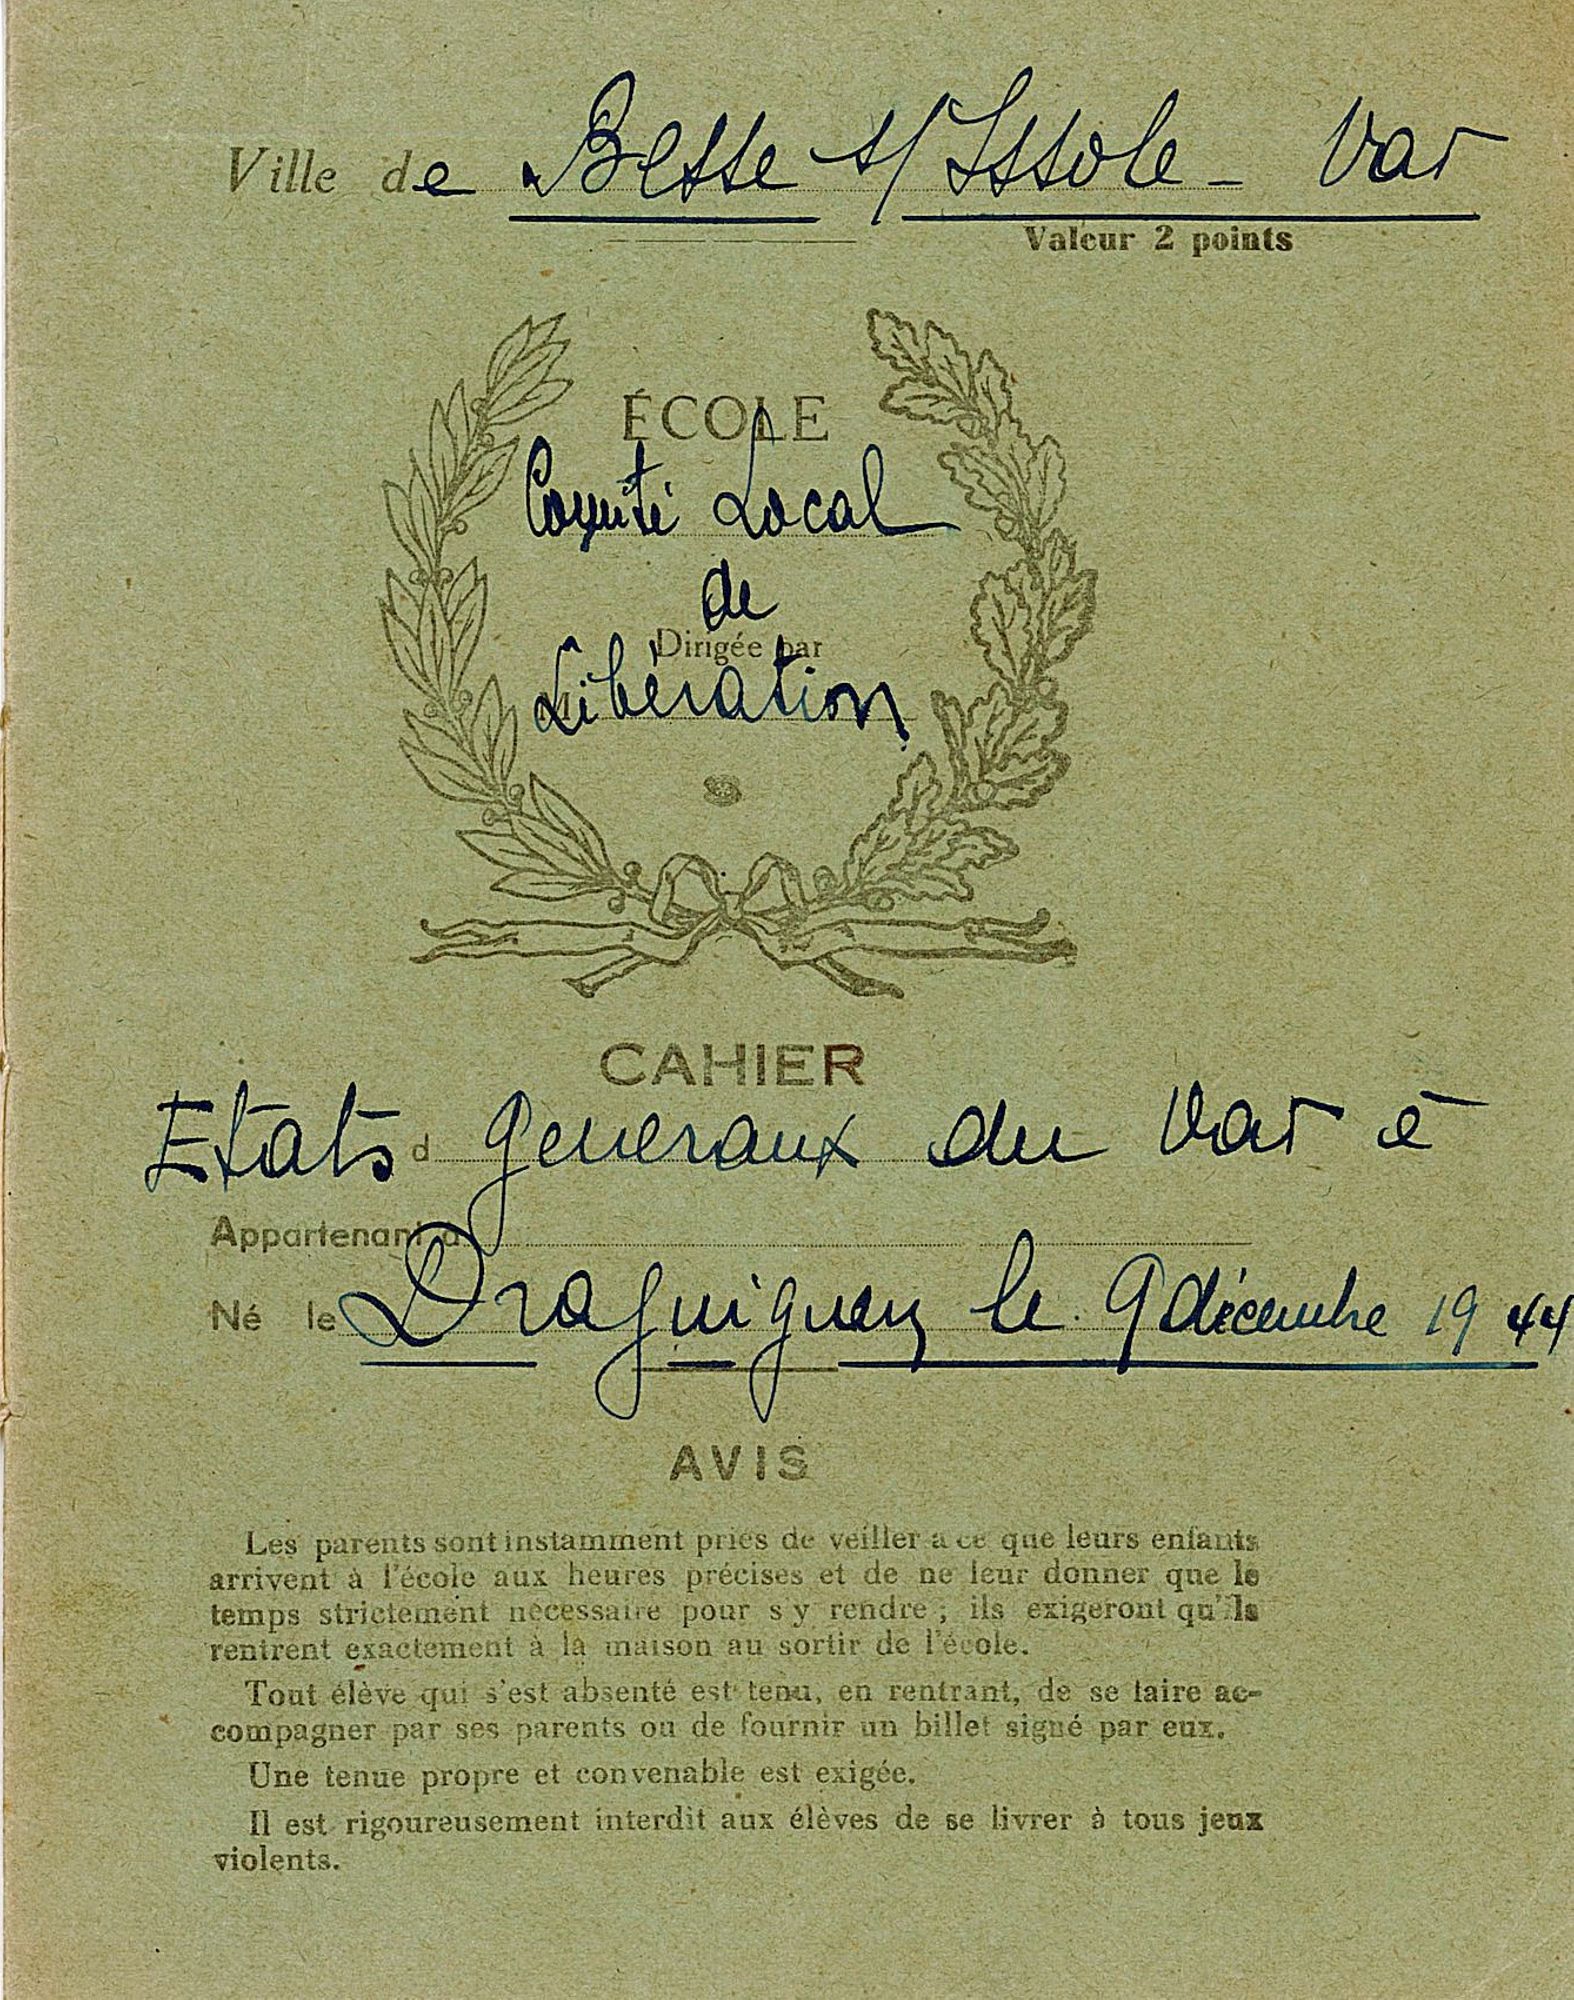 Ville de Besse s/ Issole - Var
Valeur 2 points
ÉCOLE
Comité Local
de
Dirigée par
Libération
CAHIER
Etats d généraux du Var à
Appartenant à
Né le Draguignan le 9 décembre 1944
AVIS
Les parents sont instamment priés de veiller à ce que leurs enfants
arrivent à l'école aux heures précises et de ne leur donner que le
temps strictement nécessaire pour s'y rendre ; ils exigeront qu'ils
rentrent exactement à la maison au sortir de l'école.
Tout élève qui s'est absenté est tenu, en rentrant, de se faire ac-
compagner par ses parents ou de fournir un billet signé par eux.
Une tenue propre et convenable est exigée.
Il est rigoureusement interdit aux élèves de se livrer à tous jeux
violents.